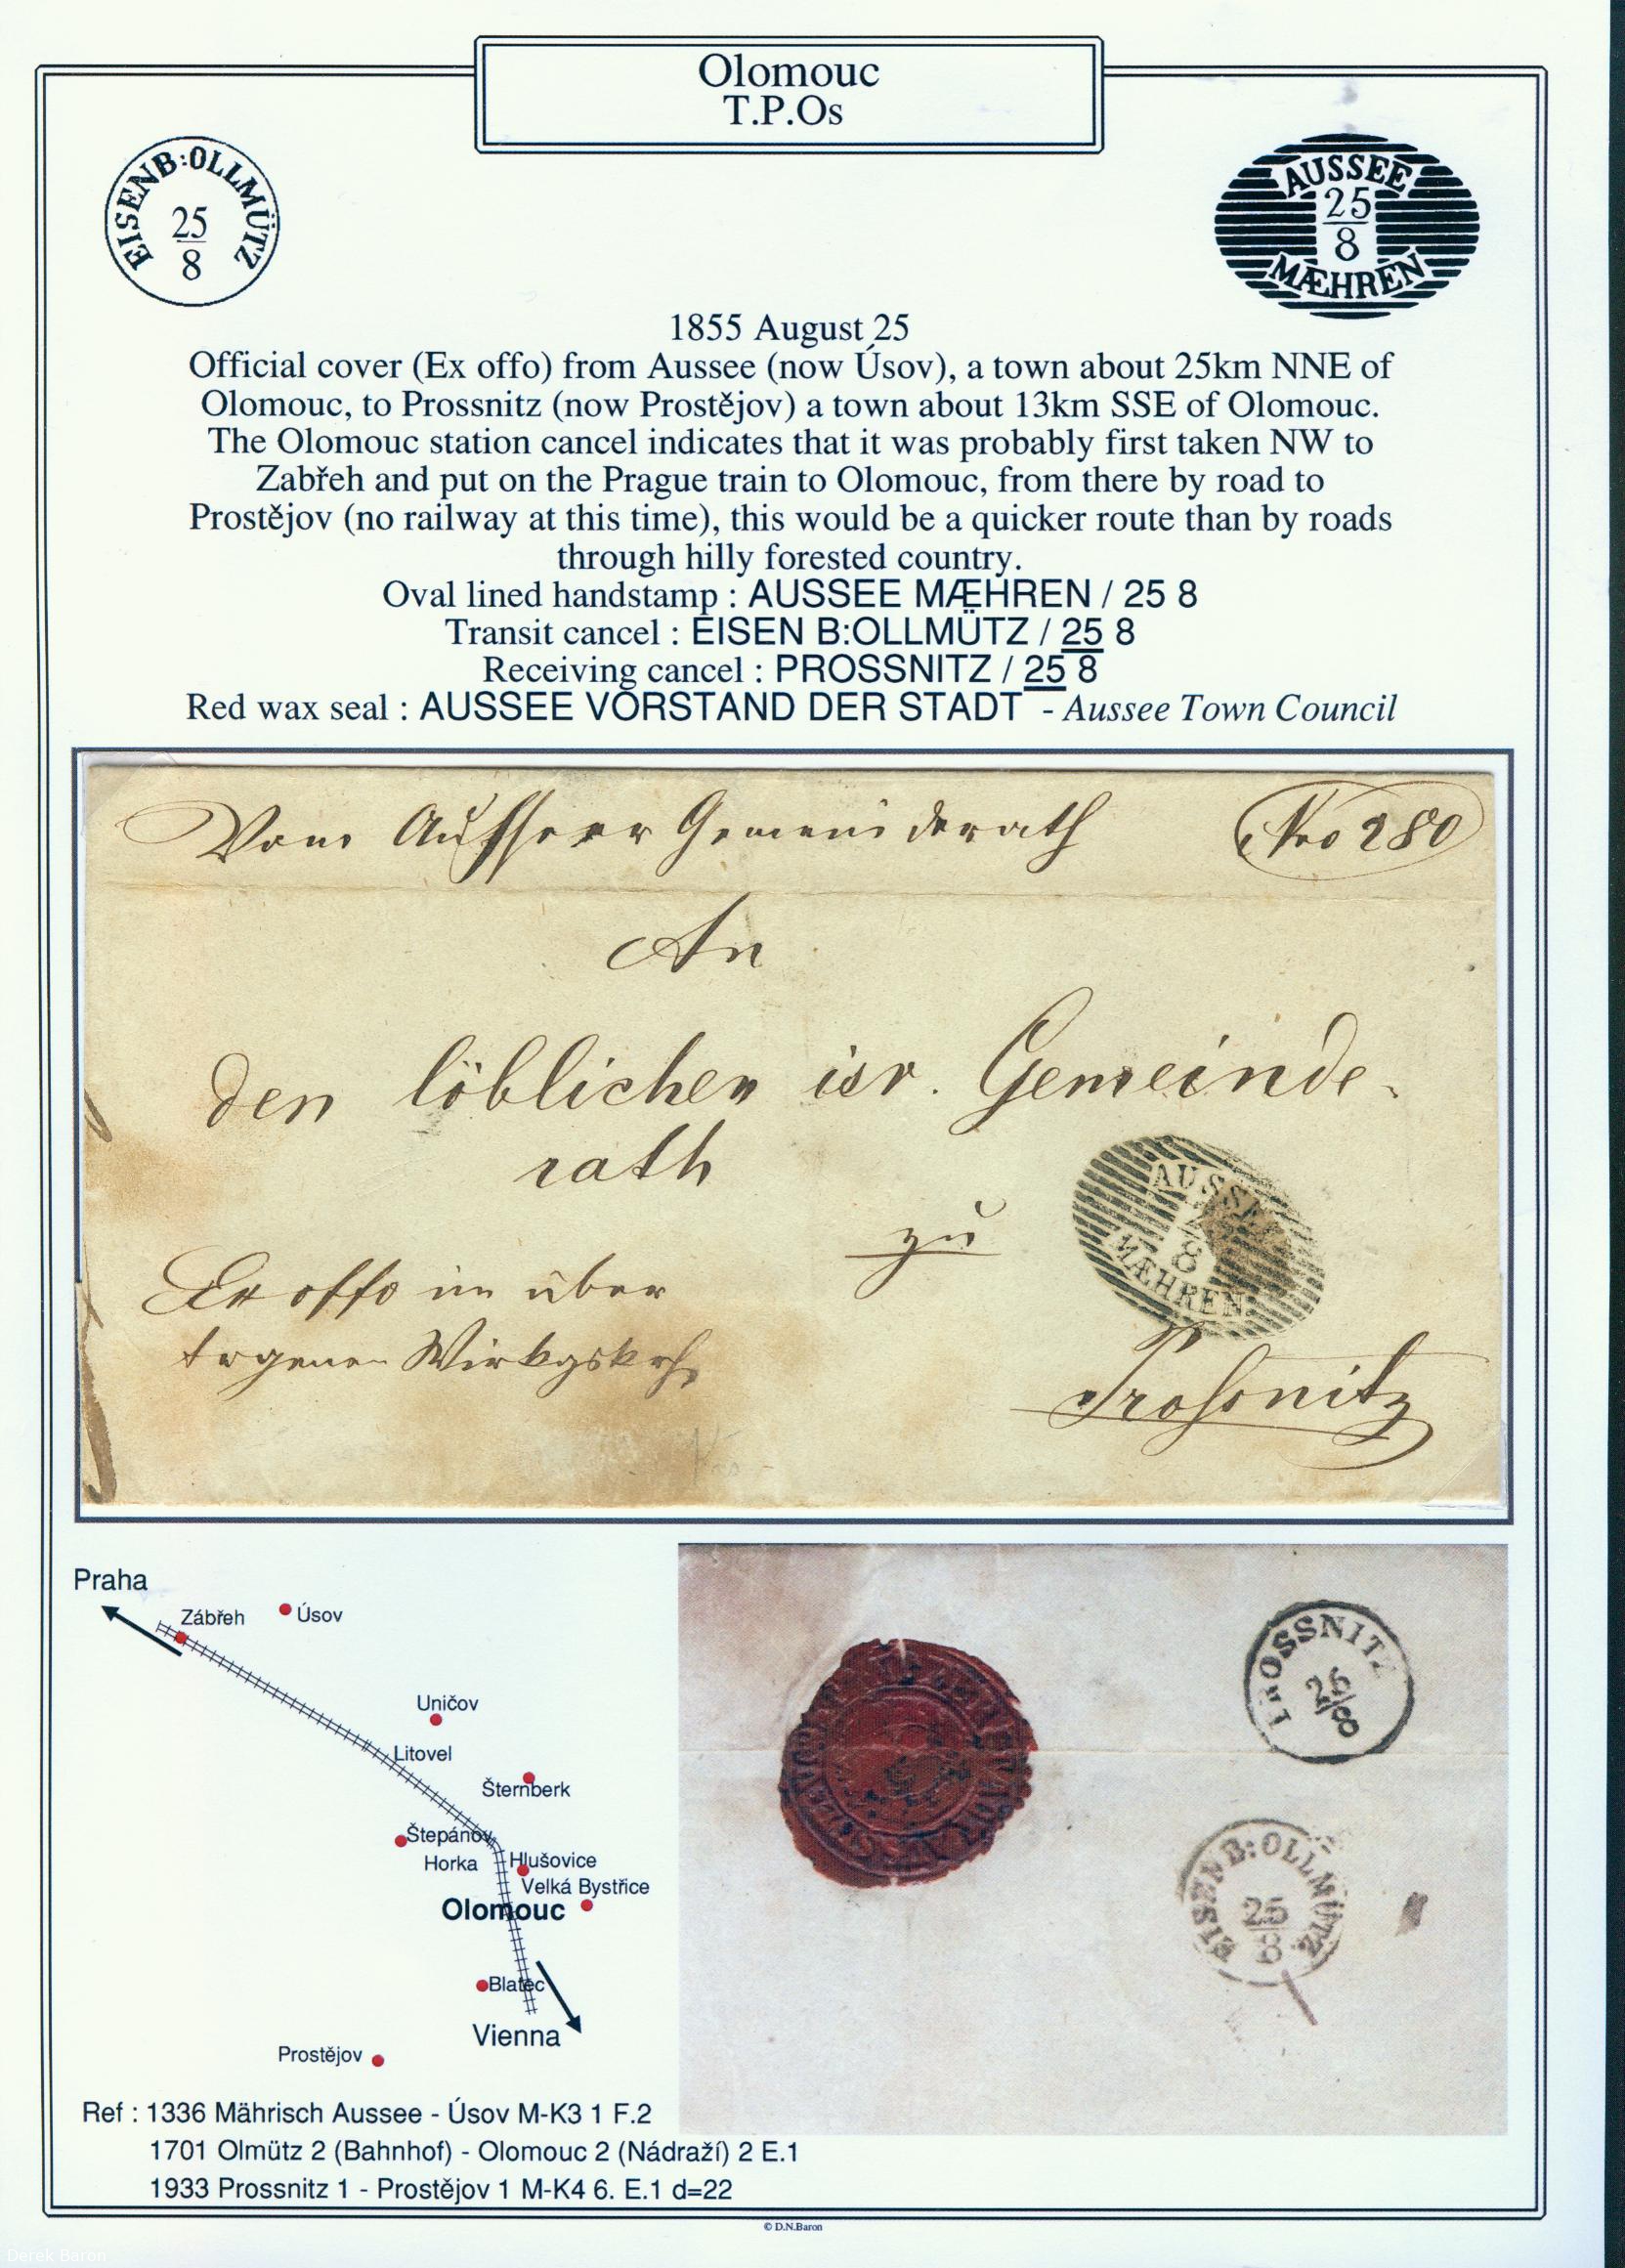 Olomouc
T.P.Os
EISENB:OLLMÜTZ
25
8
AUSSEE
25
8
MÆHREN
1855 August 25
Official cover (Ex offo) from Aussee (now Úsov), a town about 25km NNE of
Olomouc, to Prossnitz (now Prostějov) a town about 13km SSE of Olomouc.
The Olomouc station cancel indicates that it was probably first taken NW to
Zabřeh and put on the Prague train to Olomouc, from there by road to
Prostějov (no railway at this time), this would be a quicker route than by roads
through hilly forested country.
Oval lined handstamp : AUSSEE MÆHREN / 25 8
Transit cancel : EISEN B:OLLMÜTZ / 25 8
Receiving cancel : PROSSNITZ / 25 8
Red wax seal : AUSSEE VORSTAND DER STADT - Aussee Town Council
Vom Ausseer Gemeinderath
Nro 280
An
den löblichen isr. Gemeinde-
rath
zu
AUSSEE
8
MÆHREN
Ex offo im über
tragenen Wirkgskrse
Prossnitz
Praha
Zábřeh
Úsov
Uničov
Litovel
Šternberk
Štepánov
Horka
Hlušovice
Velká Bystřice
Olomouc
Blatec
Vienna
Prostějov
PROSSNITZ
8
EISENB:OLLMÜTZ
25
8
Ref : 1336 Mährisch Aussee - Úsov M-K3 1 F.2
1701 Olmütz 2 (Bahnhof) - Olomouc 2 (Nádraží) 2 E.1
1933 Prossnitz 1 - Prostějov 1 M-K4 6. E.1 d=22
© D.N.Baron
Derek Baron